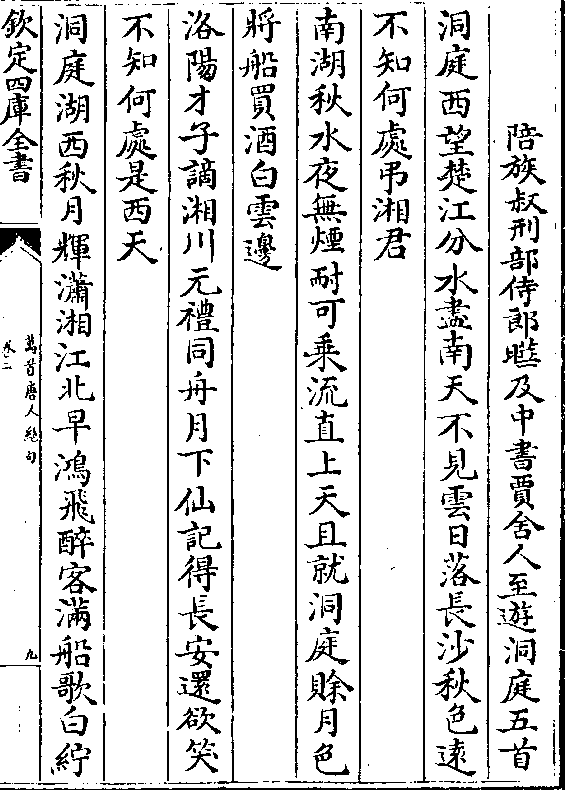 陪族叔刑部侍郎曄及中書賈舍人至遊洞庭五首
洞庭西望楚江分水盡南天不見雲日落長沙秋色遠
不知何處弔湘君
南湖秋水夜無煙耐可乗流直上天且就洞庭賖月色
將船買酒白雲邊
洛陽才子謫湘川元禮同舟月下仙記得長安還欲笑
不知何處是西天
洞庭湖西秋月輝瀟湘江北早鴻飛醉客滿船歌白紵
欽定四庫全書
萬首唐人絶句
卷二
九